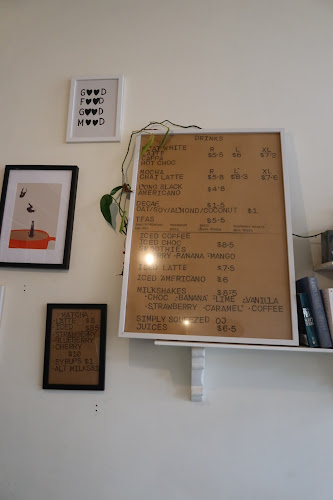 GOOD
FOOD
GOOD
MOOD
DRINKS
R L XL
LATTE $5.5 $6 $7.2
CAPPA
HOT CHOC
MOCHA R L XL
CHAI LATTE $5.8 $6.3 $7.6
LONG BLACK $4.8
AMERICANO
DECAF $1.5
OAT/SOY/ALMOND/COCONUT $1
TEAS $5.5
ICED COFFEE
ICED CHOC $8.5
SMOOTHIES
BERRY -BANANA -MANGO
LATTE $7.5
ICED AMERICANO $6
MILKSHAKES $8.5
-CHOC -BANANA -LIME -VANILLA
-STRAWBERRY -CARAMEL -COFFEE
SIMPLY SQUEEZED OJ
JUICES $6.5
MATCHA
LATTE
ICED
STRAWBERRY
BLUEBERRY
CHERRY
$10
SYRUPS $1
-ALT MILKS